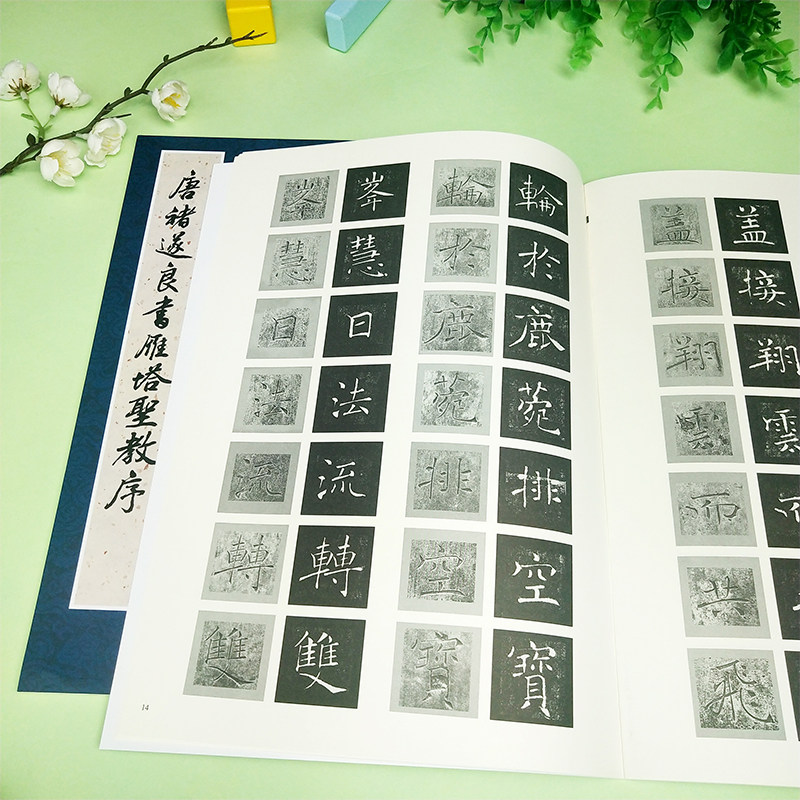 唐褚遂良書雁塔聖教序
峯慧日法流轉雙
峯慧日法流轉雙
輪於鹿菀排空寶
輪於鹿菀排空寶
盖接翔雲而共飛
盖接翔雲而
14